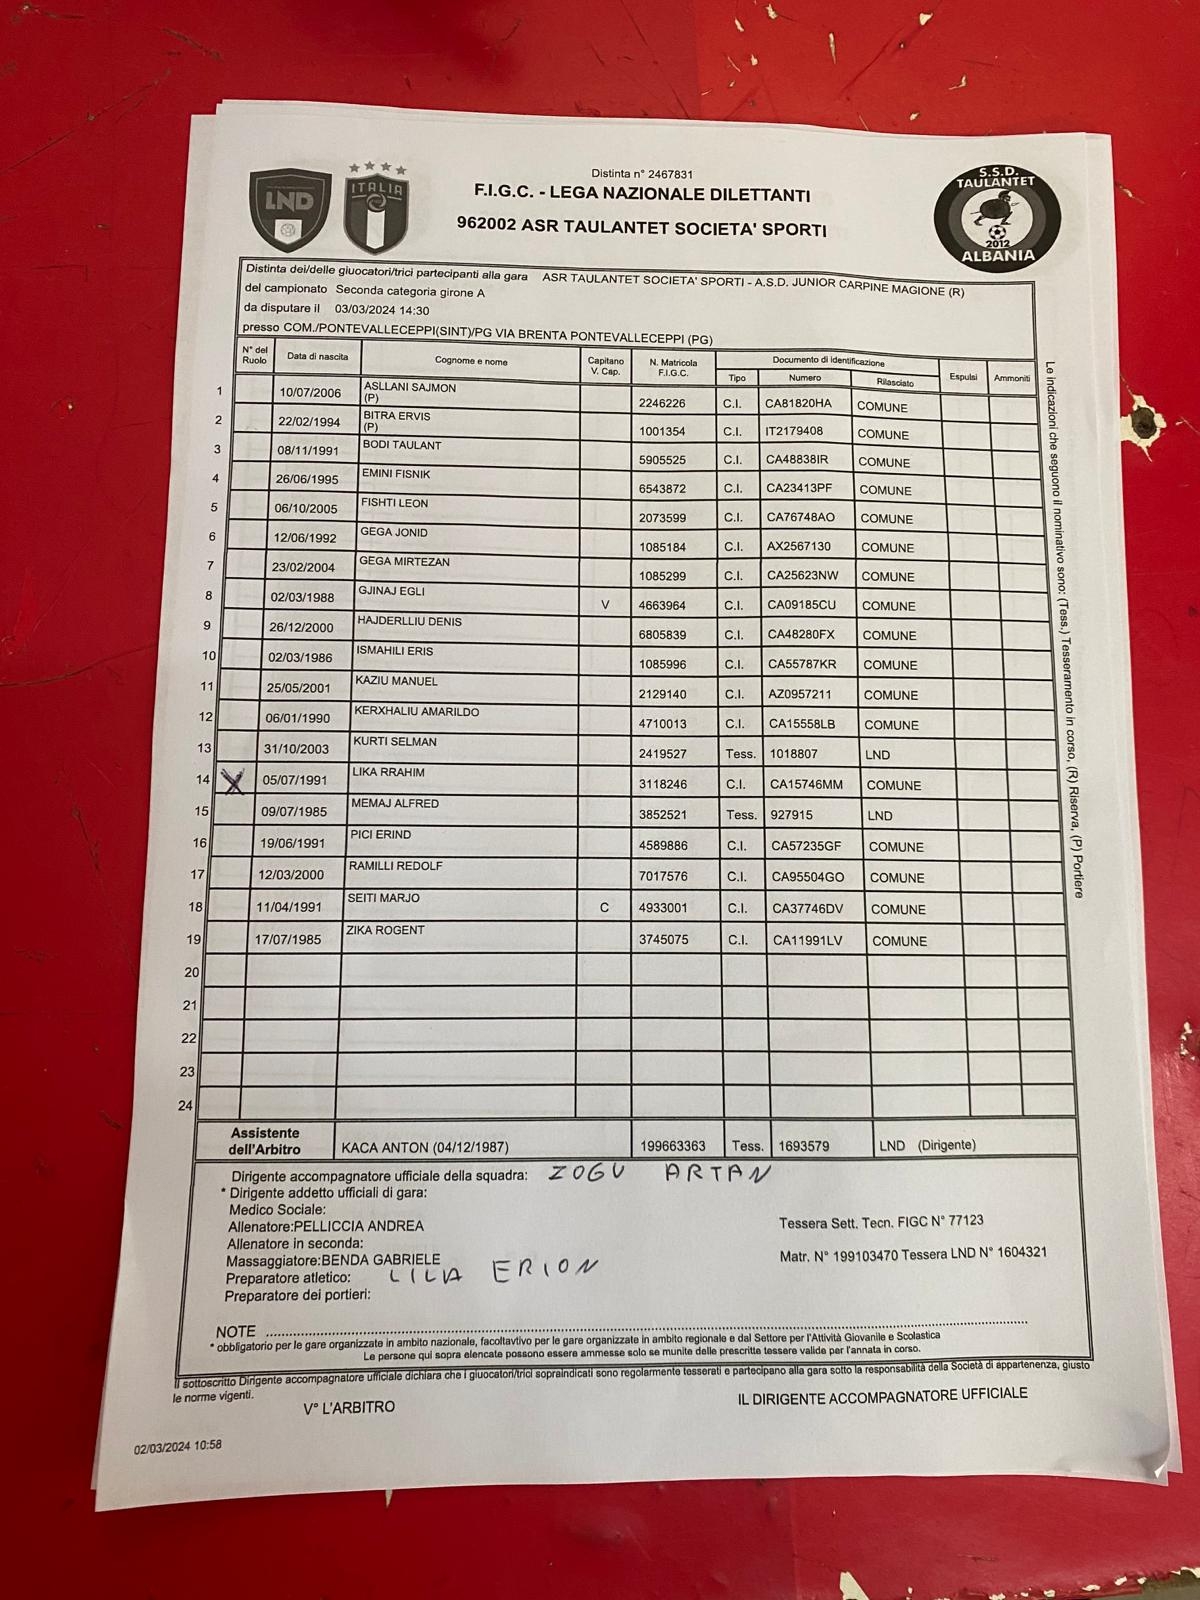 LND
ITALIA
Distinta n° 2467831
F.I.G.C. - LEGA NAZIONALE DILETTANTI
962002 ASR TAULANTET SOCIETA' SPORTI
S.S.D.
TAULANTET
2012
ALBANIA
Distinta dei/delle giuocatori/trici partecipanti alla gara ASR TAULANTET SOCIETA' SPORTI - A.S.D. JUNIOR CARPINE MAGIONE (R)
del campionato Seconda categoria girone A
da disputare il 03/03/2024 14:30
presso COM./PONTEVALLECEPPI(SINT)/PG VIA BRENTA PONTEVALLECEPPI (PG)
N° del Ruolo Data di nascita Cognome e nome Capitano V. Cap. N. Matricola F.I.G.C. Documento di identificazione Espulsi Ammoniti
Tipo Numero Rilasciato
1 10/07/2006 ASLLANI SAJMON (P) 2246226 C.I. CA81820HA COMUNE
2 22/02/1994 BITRA ERVIS (P) 1001354 C.I. IT2179408 COMUNE
3 08/11/1991 BODI TAULANT 5905525 C.I. CA48838IR COMUNE
4 26/06/1995 EMINI FISNIK 6543872 C.I. CA23413PF COMUNE
5 06/10/2005 FISHTI LEON 2073599 C.I. CA76748AO COMUNE
6 12/06/1992 GEGA JONID 1085184 C.I. AX2567130 COMUNE
7 23/02/2004 GEGA MIRTEZAN 1085299 C.I. CA25623NW COMUNE
8 02/03/1988 GJINAJ EGLI V 4663964 C.I. CA09185CU COMUNE
9 26/12/2000 HAJDERLLIU DENIS 6805839 C.I. CA48280FX COMUNE
10 02/03/1986 ISMAHILI ERIS 1085996 C.I. CA55787KR COMUNE
11 25/05/2001 KAZIU MANUEL 2129140 C.I. AZ0957211 COMUNE
12 06/01/1990 KERXHALIU AMARILDO 4710013 C.I. CA15558LB COMUNE
13 31/10/2003 KURTI SELMAN 2419527 Tess. 1018807 LND
14 X 05/07/1991 LIKA RRAHIM 3118246 C.I. CA15746MM COMUNE
15 09/07/1985 MEMAJ ALFRED 3852521 Tess. 927915 LND
16 19/06/1991 PICI ERIND 4589886 C.I. CA57235GF COMUNE
17 12/03/2000 RAMILLI REDOLF 7017576 C.I. CA95504GO COMUNE
18 11/04/1991 SEITI MARJO C 4933001 C.I. CA37746DV COMUNE
19 17/07/1985 ZIKA ROGENT 3745075 C.I. CA11991LV COMUNE
20
21
22
23
24
Le indicazioni che seguono il nominativo sono: (Tess.) Tesseramento in corso, (R) Riserva, (P) Portiere
Assistente dell'Arbitro KACA ANTON (04/12/1987) 199663363 Tess. 1693579 LND (Dirigente)
Dirigente accompagnatore ufficiale della squadra: ZOGU ARTAN
* Dirigente addetto ufficiali di gara:
Medico Sociale:
Allenatore:PELLICCIA ANDREA Tessera Sett. Tecn. FIGC N° 77123
Allenatore in seconda:
Massaggiatore:BENDA GABRIELE Matr. N° 199103470 Tessera LND N° 1604321
Preparatore atletico: LILA ERION
Preparatore dei portieri:
NOTE ..........
* obbligatorio per le gare organizzate in ambito nazionale, facoltavtivo per le gare organizzate in ambito regionale e dal Settore per l'Attività Giovanile e Scolastica
Le persone qui sopra elencate possono essere ammesse solo se munite delle prescritte tessere valide per l'annata in corso.
Il sottoscritto Dirigente accompagnatore ufficiale dichiara che i giuocatori/trici sopraindicati sono regolarmente tesserati e partecipano alla gara sotto la responsabilità della Società di appartenenza, giusto
le norme vigenti.
V° L'ARBITRO IL DIRIGENTE ACCOMPAGNATORE UFFICIALE
02/03/2024 10:58